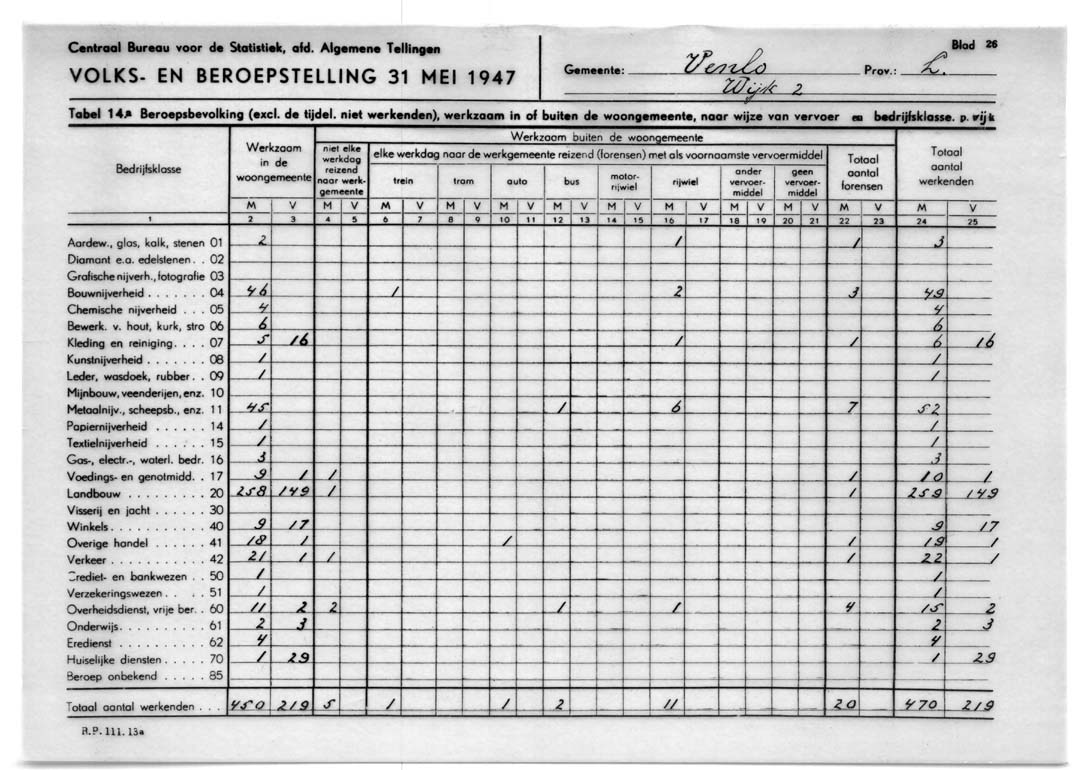 Centraal Bureau voor de Statistiek, afd. Algemene Tellingen
VOLKS- EN BEROEPSTELLING 31 MEI 1947
Gemeente: Venlo Prov.: L. Blad 26
Wijk 2
Tabel 14.a Beroepsbevolking (excl. de tijdel. niet werkenden), werkzaam in of buiten de woongemeente, naar wijze van vervoer en bedrijfsklasse. p. wijk
Bedrijfsklasse
Werkzaam in de woongemeente
Werkzaam buiten de woongemeente
niet elke werkdag reizend naar werk-gemeente
elke werkdag naar de werkgemeente reizend (forensen) met als voornaamste vervoermiddel
trein tram auto bus motor-rijwiel rijwiel ander vervoer-middel geen vervoer-middel
Totaal aantal forensen
Totaal aantal werkenden
M V M V M V M V M V M V M V M V M V M V M V M V
1 2 3 4 5 6 7 8 9 10 11 12 13 14 15 16 17 18 19 20 21 22 23 24 25
Aardew., glas, kalk, stenen 01 2 1 1 3
Diamant e.a. edelstenen . . 02
Grafische nijverh., fotografie 03
Bouwnijverheid . . . . . . . 04 46 1 2 3 49
Chemische nijverheid . . . 05 4 4
Bewerk. v. hout, kurk, stro 06 6 6
Kleding en reiniging. . . . 07 5 16 1 1 6 16
Kunstnijverheid . . . . . . . 08 1 1
Leder, wasdoek, rubber. . 09 1 1
Mijnbouw, veenderijen, enz. 10
Metaalnijv., scheepsb., enz. 11 45 1 6 7 52
Papiernijverheid . . . . . . 14 1 1
Textielnijverheid . . . . . . 15 1 1
Gas-, electr.-, waterl. bedr. 16 3 3
Voedings- en genotmidd. . 17 9 1 1 1 10 1
Landbouw . . . . . . . . . 20 258 149 1 1 259 149
Visserij en jacht . . . . . . 30
Winkels . . . . . . . . . . . 40 9 17 9 17
Overige handel . . . . . . 41 18 1 1 1 19 1
Verkeer . . . . . . . . . . . 42 21 1 1 1 22 1
Crediet- en bankwezen . . 50 1 1
Verzekeringswezen . . . . 51 1 1
Overheidsdienst, vrije ber. . 60 11 2 2 1 1 4 15 2
Onderwijs . . . . . . . . . . 61 2 3 2 3
Eredienst . . . . . . . . . . 62 4 4
Huiselijke diensten . . . . . 70 1 29 1 29
Beroep onbekend . . . . . 85
Totaal aantal werkenden . . . 450 219 5 1 1 2 11 20 470 219
R.P. 111. 13a